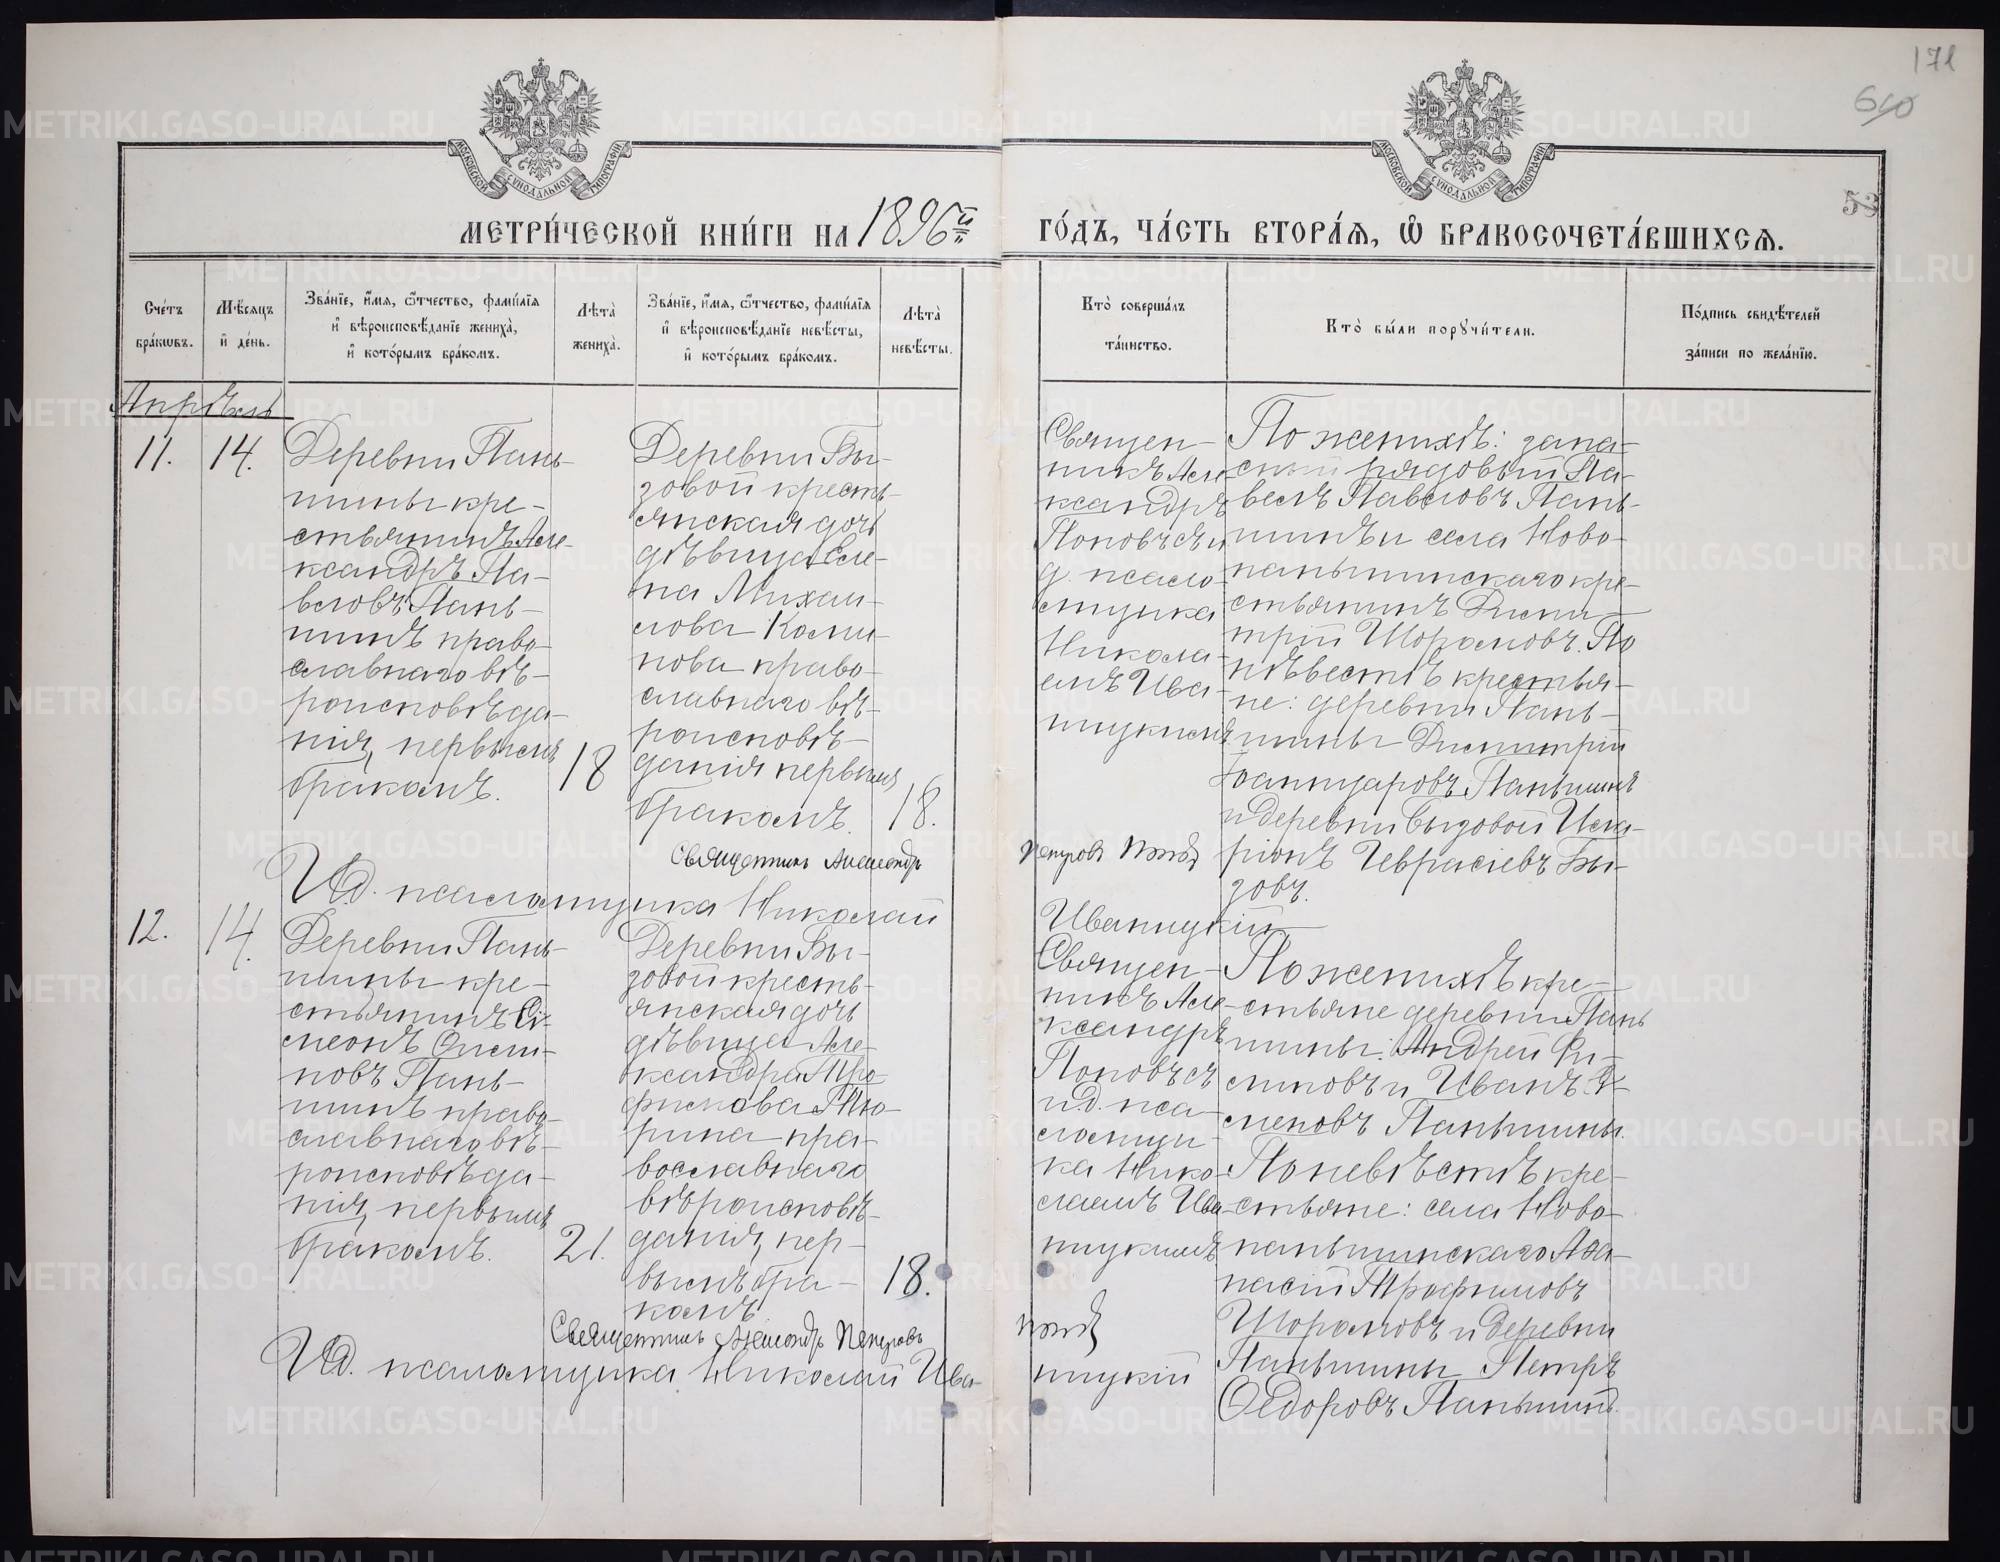 171
53
МОСКОВСКОЙ СУНОДАЛЬНОЙ ТИПОГРАФІИ
МОСКОВСКОЙ СУНОДАЛЬНОЙ ТИПОГРАФІИ
МЕТРИ́ЧЕСКОЙ КНИ́ГИ НА 1896й ГО́ДЪ, ЧА́СТЬ ВТОРА́Я, Ѡ БРАКОСОЧЕТА́ВШИХСЯ.
Сче́тъ
бра́кѡвъ.
Мѣ́сяцъ
и҆ де́нь.
Зва́нїе, и҆́мя, ѻ҆́тчество, фами́лїя
и҆ вѣроисповѣ́данїе жениха̀,
и҆ кото́рымъ бра́комъ.
Лѣ́та
жениха̀.
Зва́нїе, и҆́мя, ѻ҆́тчество, фами́лїя
и҆ вѣроисповѣ́данїе невѣ́сты,
и҆ кото́рымъ бра́комъ.
Лѣ́та
невѣ́сты.
Кто̀ соверша́лъ
та́инство.
Кто̀ бы́ли порꙋчи́тели.
По́дпись свидѣ́телей
за́писи по жела́нїю.
Апрѣль
11.
14.
Деревни Пань-
шины кре-
стьянинъ Але-
ксандръ Па-
вловъ Пань-
шинъ право-
славнаго вѣ-
роисповѣда-
нія, первымъ
бракомъ.
18
Деревни Бы-
зовой кресть-
янская дочь
дѣвица Еле-
на Михаи-
лова Коми-
нова право-
славнаго вѣ-
роисповѣ-
данія первымъ
бракомъ.
18.
Священ-
никъ Але-
ксандръ
Поповъ съ и.
д. псало-
мщика
Никола-
емъ Ива-
ницкимъ
По женихѣ: запа-
сный рядовый Па-
велъ Павловъ Пань-
шинъ и села Ново-
паньшинскаго кре-
стьянинъ Дими-
трій Шорамовъ. По
нѣвестѣ крестья-
не: деревни Пань-
шины Димитрій
Іоаннуаровъ Паньшинъ
и деревни Бызовой Ила-
ріонъ Іеврасіевъ Бы-
зовъ.
Священникъ Александръ
И.д. псаломщика Николай
Иваницкій
12.
14.
Деревни Пань-
шины кре-
стьянинъ Си-
меонъ Оиси-
новъ Пань-
шинъ право-
славнаго вѣ-
роисповѣда-
нія, первымъ
бракомъ.
21.
Деревни Бы-
зовой кресть-
янская дочь
дѣвица Але-
ксандра Тро-
фимова Тю-
рина пра-
вославнаго
вѣроисповѣ-
данія, пер-
вымъ бра-
комъ
18.
Священ-
никъ Але-
ксандръ
Поповъ съ
и.д. пса-
ломщи-
ка Нико-
лаемъ Ива-
ницкимъ
По женихѣ кре-
стьяне деревни Пань
шины: Андрей Фи-
липовъ и Иванъ Си-
меновъ Паньшины.
По невѣстѣ кре-
стьяне: села Ново-
паньшинскаго Аѳа-
насій Трофимовъ
Шорамовъ и деревни
Паньшины Петръ
Ѳедоровъ Паньшинъ.
Священникъ Александръ
И.д. псаломщика Николай Ива-
ницкій
METRIKI.GASO-URAL.RU